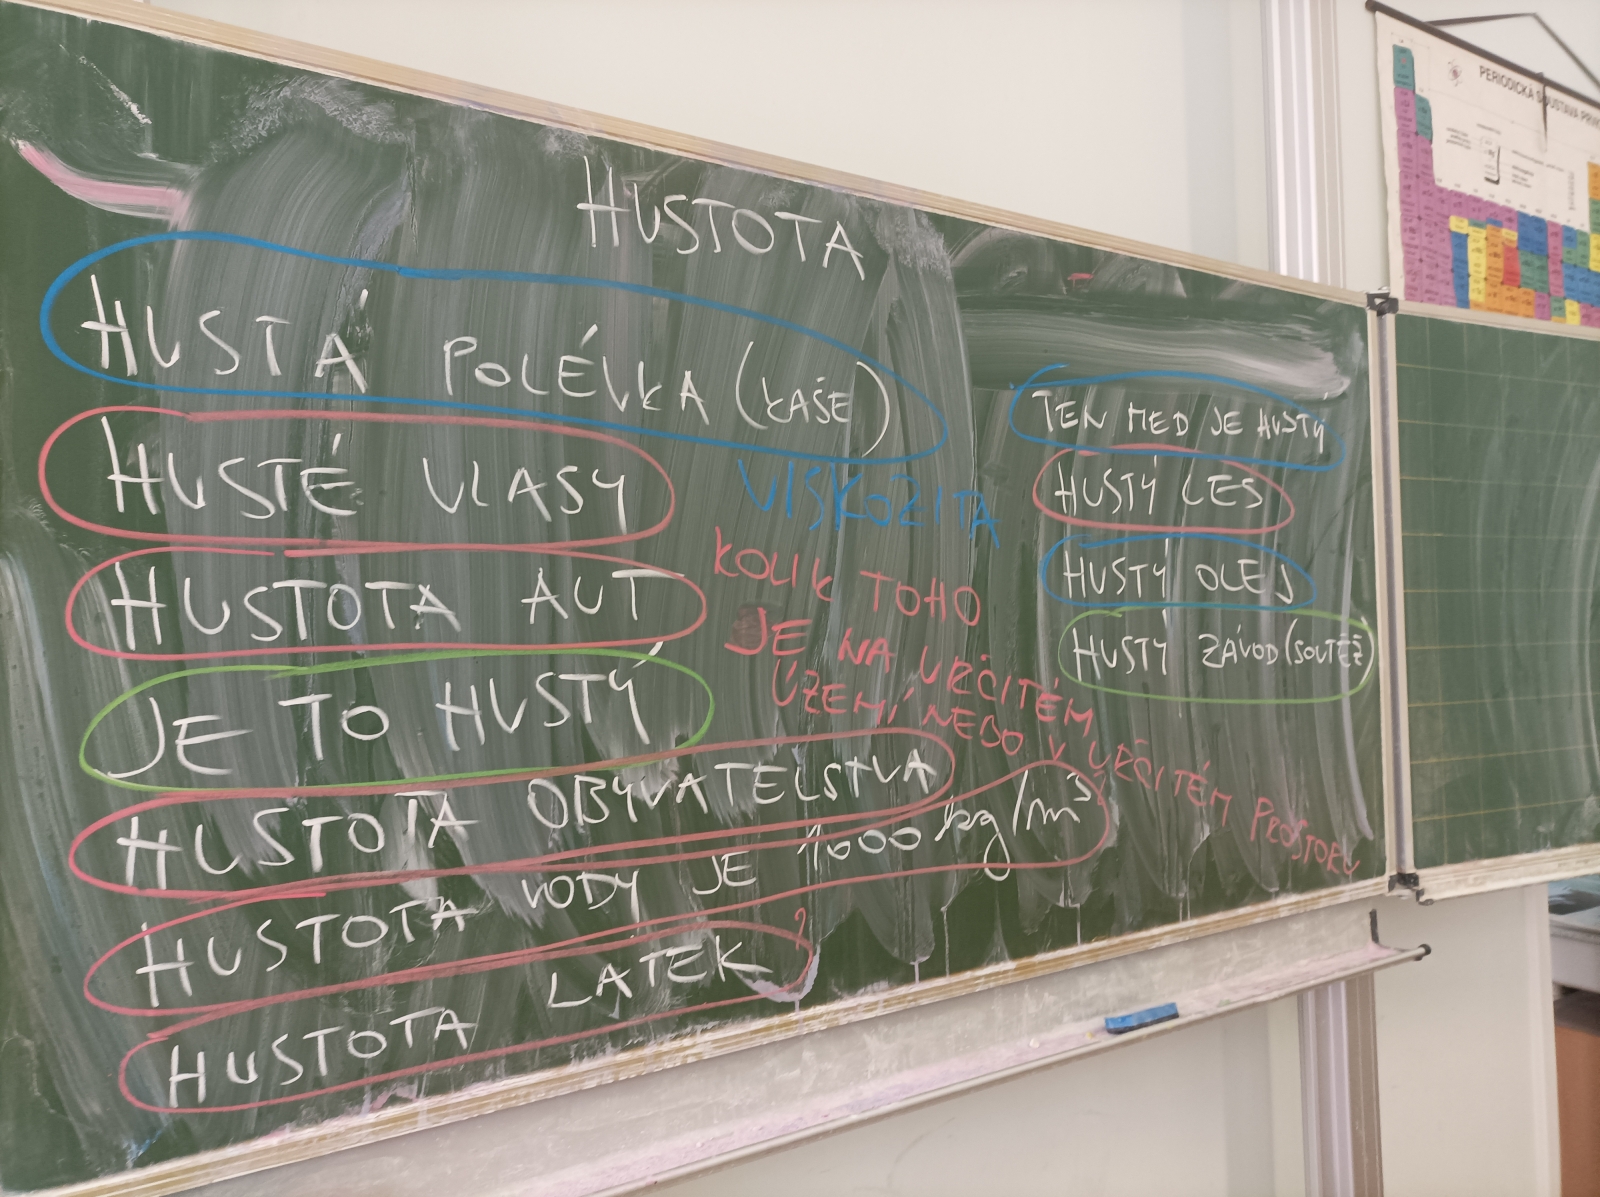 HUSTOTA
HUSTÁ POLÉVKA (KAŠE)
HUSTÉ VLASY
HUSTOTA AUT
JE TO HUSTÝ
HUSTOTA OBYVATELSTVA
HUSTOTA VODY JE 1000 kg/m³
HUSTOTA LÁTEK ?
VISKOZITA
KOLIK TOHO
JE NA URČITÉM
ÚZEMÍ NEBO V URČITÉM PROSTORU
TEN MED JE HUSTÝ
HUSTÝ LES
HUSTÝ OLEJ
HUSTÝ ZÁVOD (SOUTĚŽ)
PERIODICKÁ SOUSTAVA